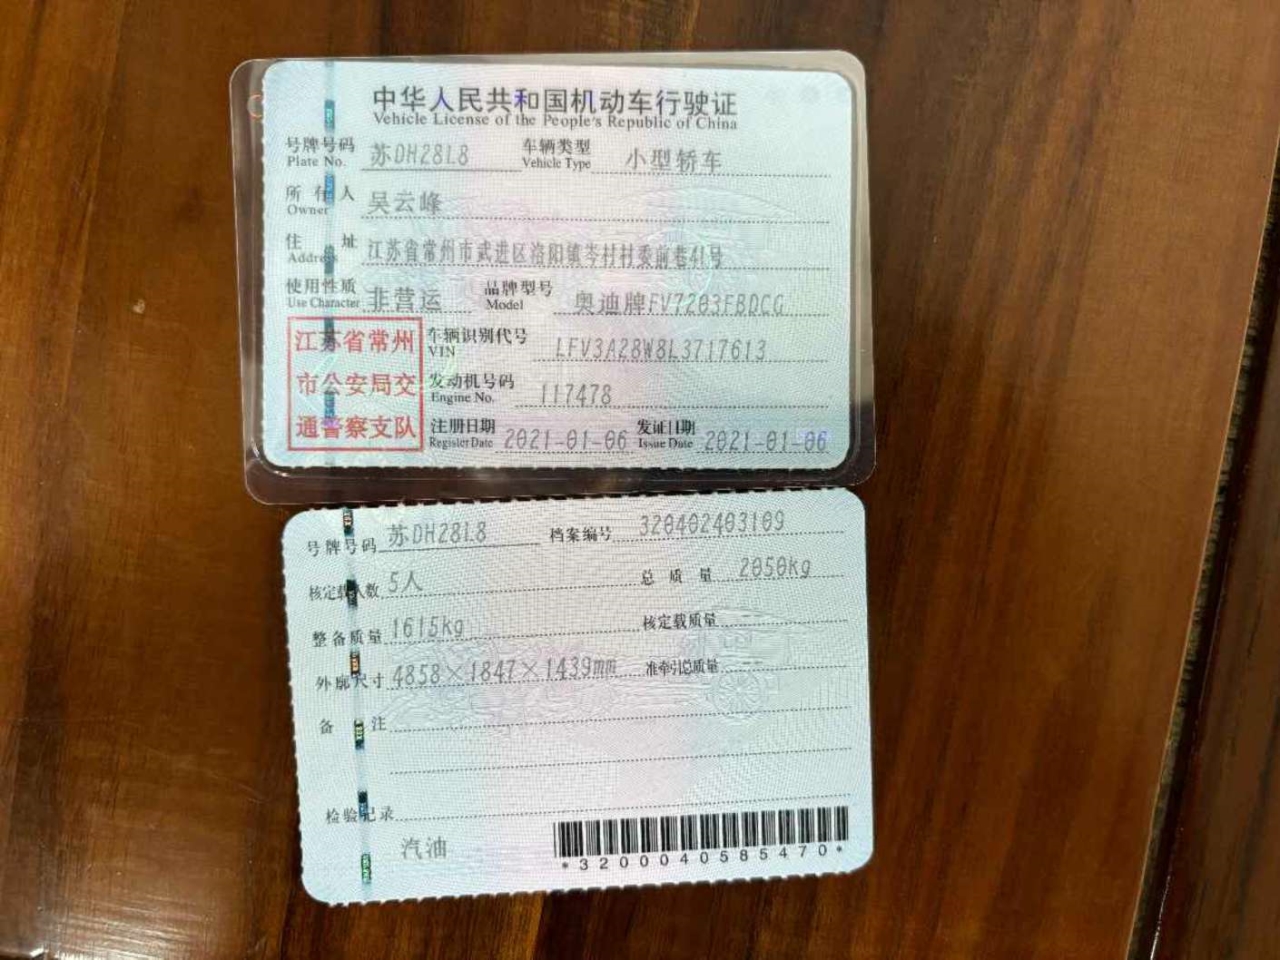 中华人民共和国机动车行驶证
Vehicle License of the People's Republic of China
号牌号码 苏DH28L8 车辆类型 小型轿车
Plate No. Vehicle Type
所有人 吴云峰
Owner
住址 江苏省常州市武进区洛阳镇岑村村委前巷41号
Address
使用性质 非营运 品牌型号 奥迪牌FV7203FBDCG
Use Character Model
江苏省常州 车辆识别代号 LFV3A28W8L3717613
VIN
市公安局交 发动机号码 117478
Engine No.
通警察支队 注册日期 2021-01-06 发证日期 2021-01-06
Register Date Issue Date
号牌号码 苏DH28L8 档案编号 320402403109
核定载人数 5人 总质量 2050kg
整备质量 1615kg 核定载质量 --
外廓尺寸 4858×1847×1439mm 准牵引总质量 --
备注
检验记录
汽油 *3200040585470*